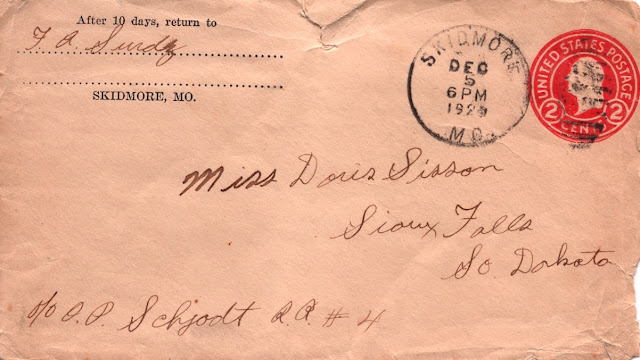 After 10 days, return to
SKIDMORE, MO.
SKIDMORE
DEC
5
6 PM
MO.
UNITED STATES POSTAGE
2 CENTS 2
Miss Doris Sisson
Sioux Falls
So. Dakota
c/o O.P. Schjodt R.R. # 4